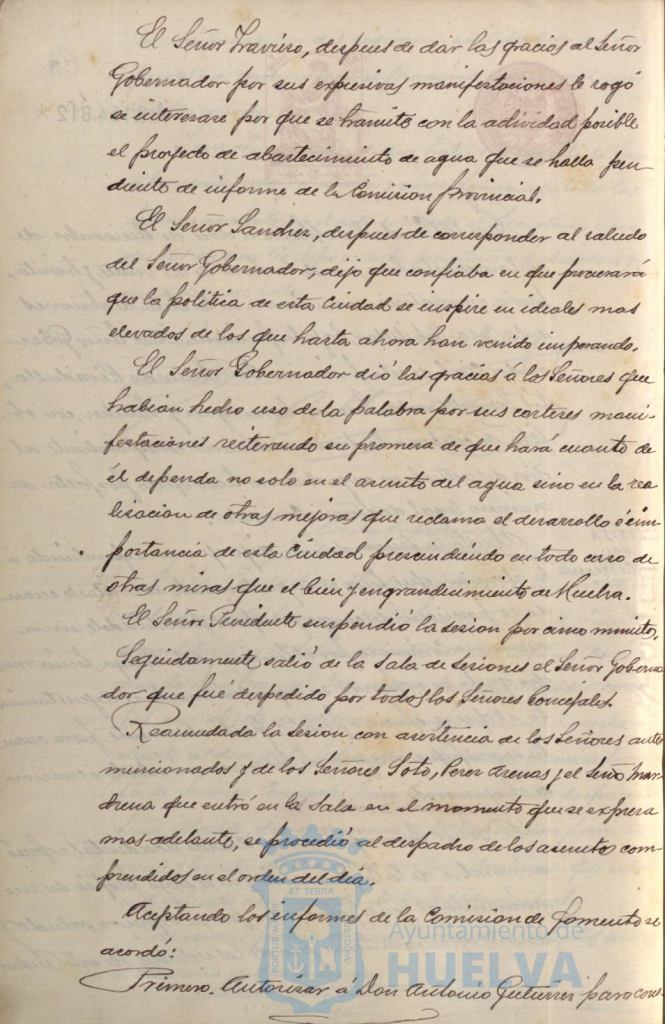 El Señor Traviéso, despues de dar las gracias al Señor
Gobernador por sus expresivas manifestaciones le rogó
se interesare por que se tramite con la actividad posible
el proyecto de abastecimiento de agua que se halla pen
diente de informe de la Comision Provincial.
El Señor Sanchez, despues de corresponder al saludo
del Señor Gobernador, dijo que confiaba en que procurará
que la politica de esta Ciudad se inspire en ideales mas
elevados de los que hasta ahora han venido imperando.
El Señor Gobernador dió las gracias á los Señores que
habian hecho uso de la palabra por sus corteses mani
festaciones reiterando su promesa de que hará cuanto de
él dependa no solo en el asunto del agua sino en la rea
lisacion de otras mejoras que reclama el desarrollo é im
portancia de esta Ciudad prescindiendo en todo caso de
otras miras que el bien y engrandecimiento de Huelva.
El Señor Presidente suspendió la sesion por cinco minutos.
Seguidamente salió de la Sala de Sesiones el Señor Goberna
dor que fué despedido por todos los Señores Concejales.
Reanudada la Sesion con asistencia de los Señores ante
mencionados y de los Señores Soto, Perez Arenas y el Señor Mar
chena que entró en la Sala en el momento que se expresa
mas adelante, se procedió al despacho de los asuntos com
prendidos en el orden del dia.
Aceptando los informes de la Comision de Fomento se
acordó:
Primero. Autorizar á Don Antonio Gutierrez para cons
Ayuntamiento de
HUELVA